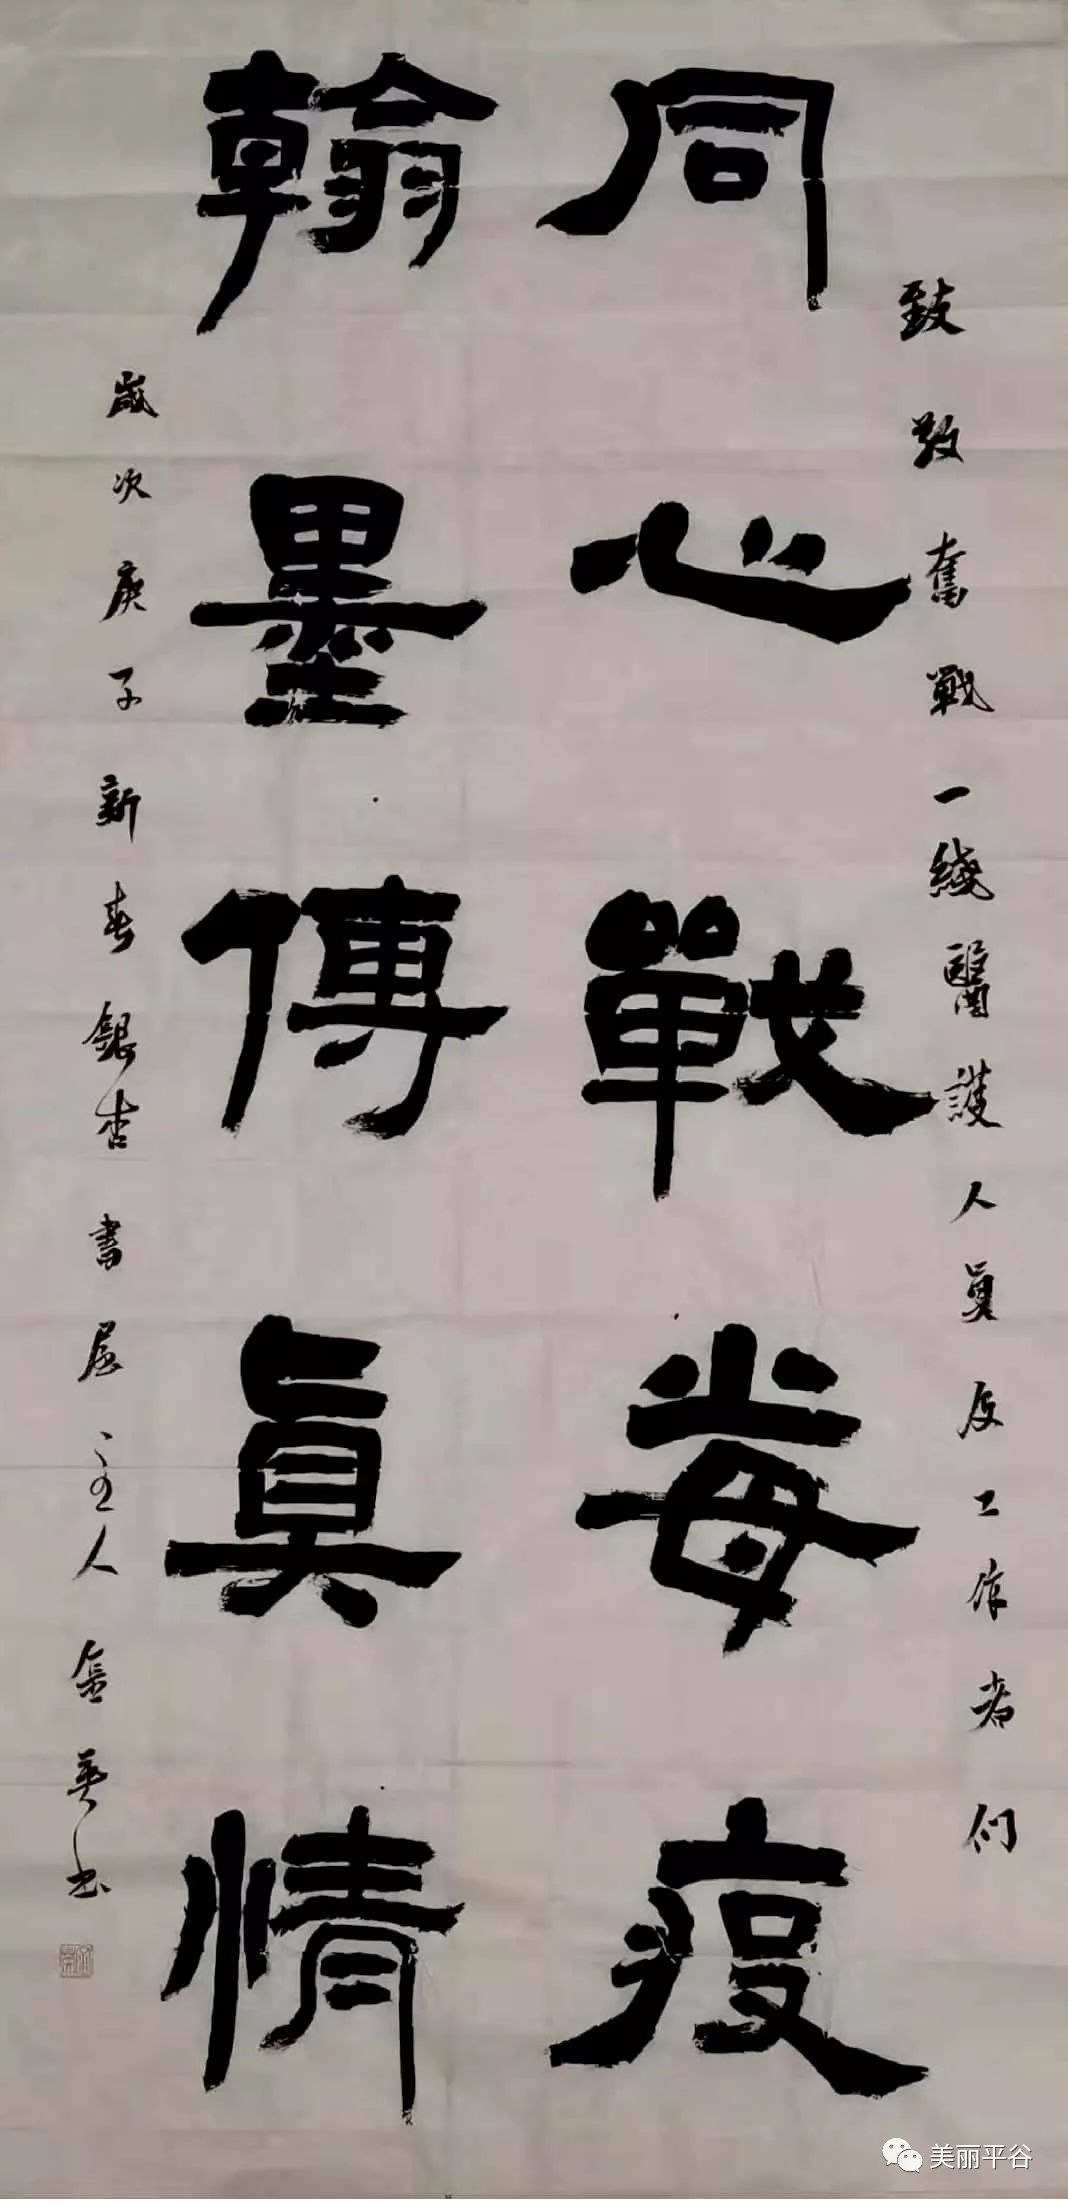 致敬奮戰一綫醫護人員及工作者们
同心戰毒疫
翰墨傳眞情
歲次庚子新春銀杏書居主人金英书
美丽平谷